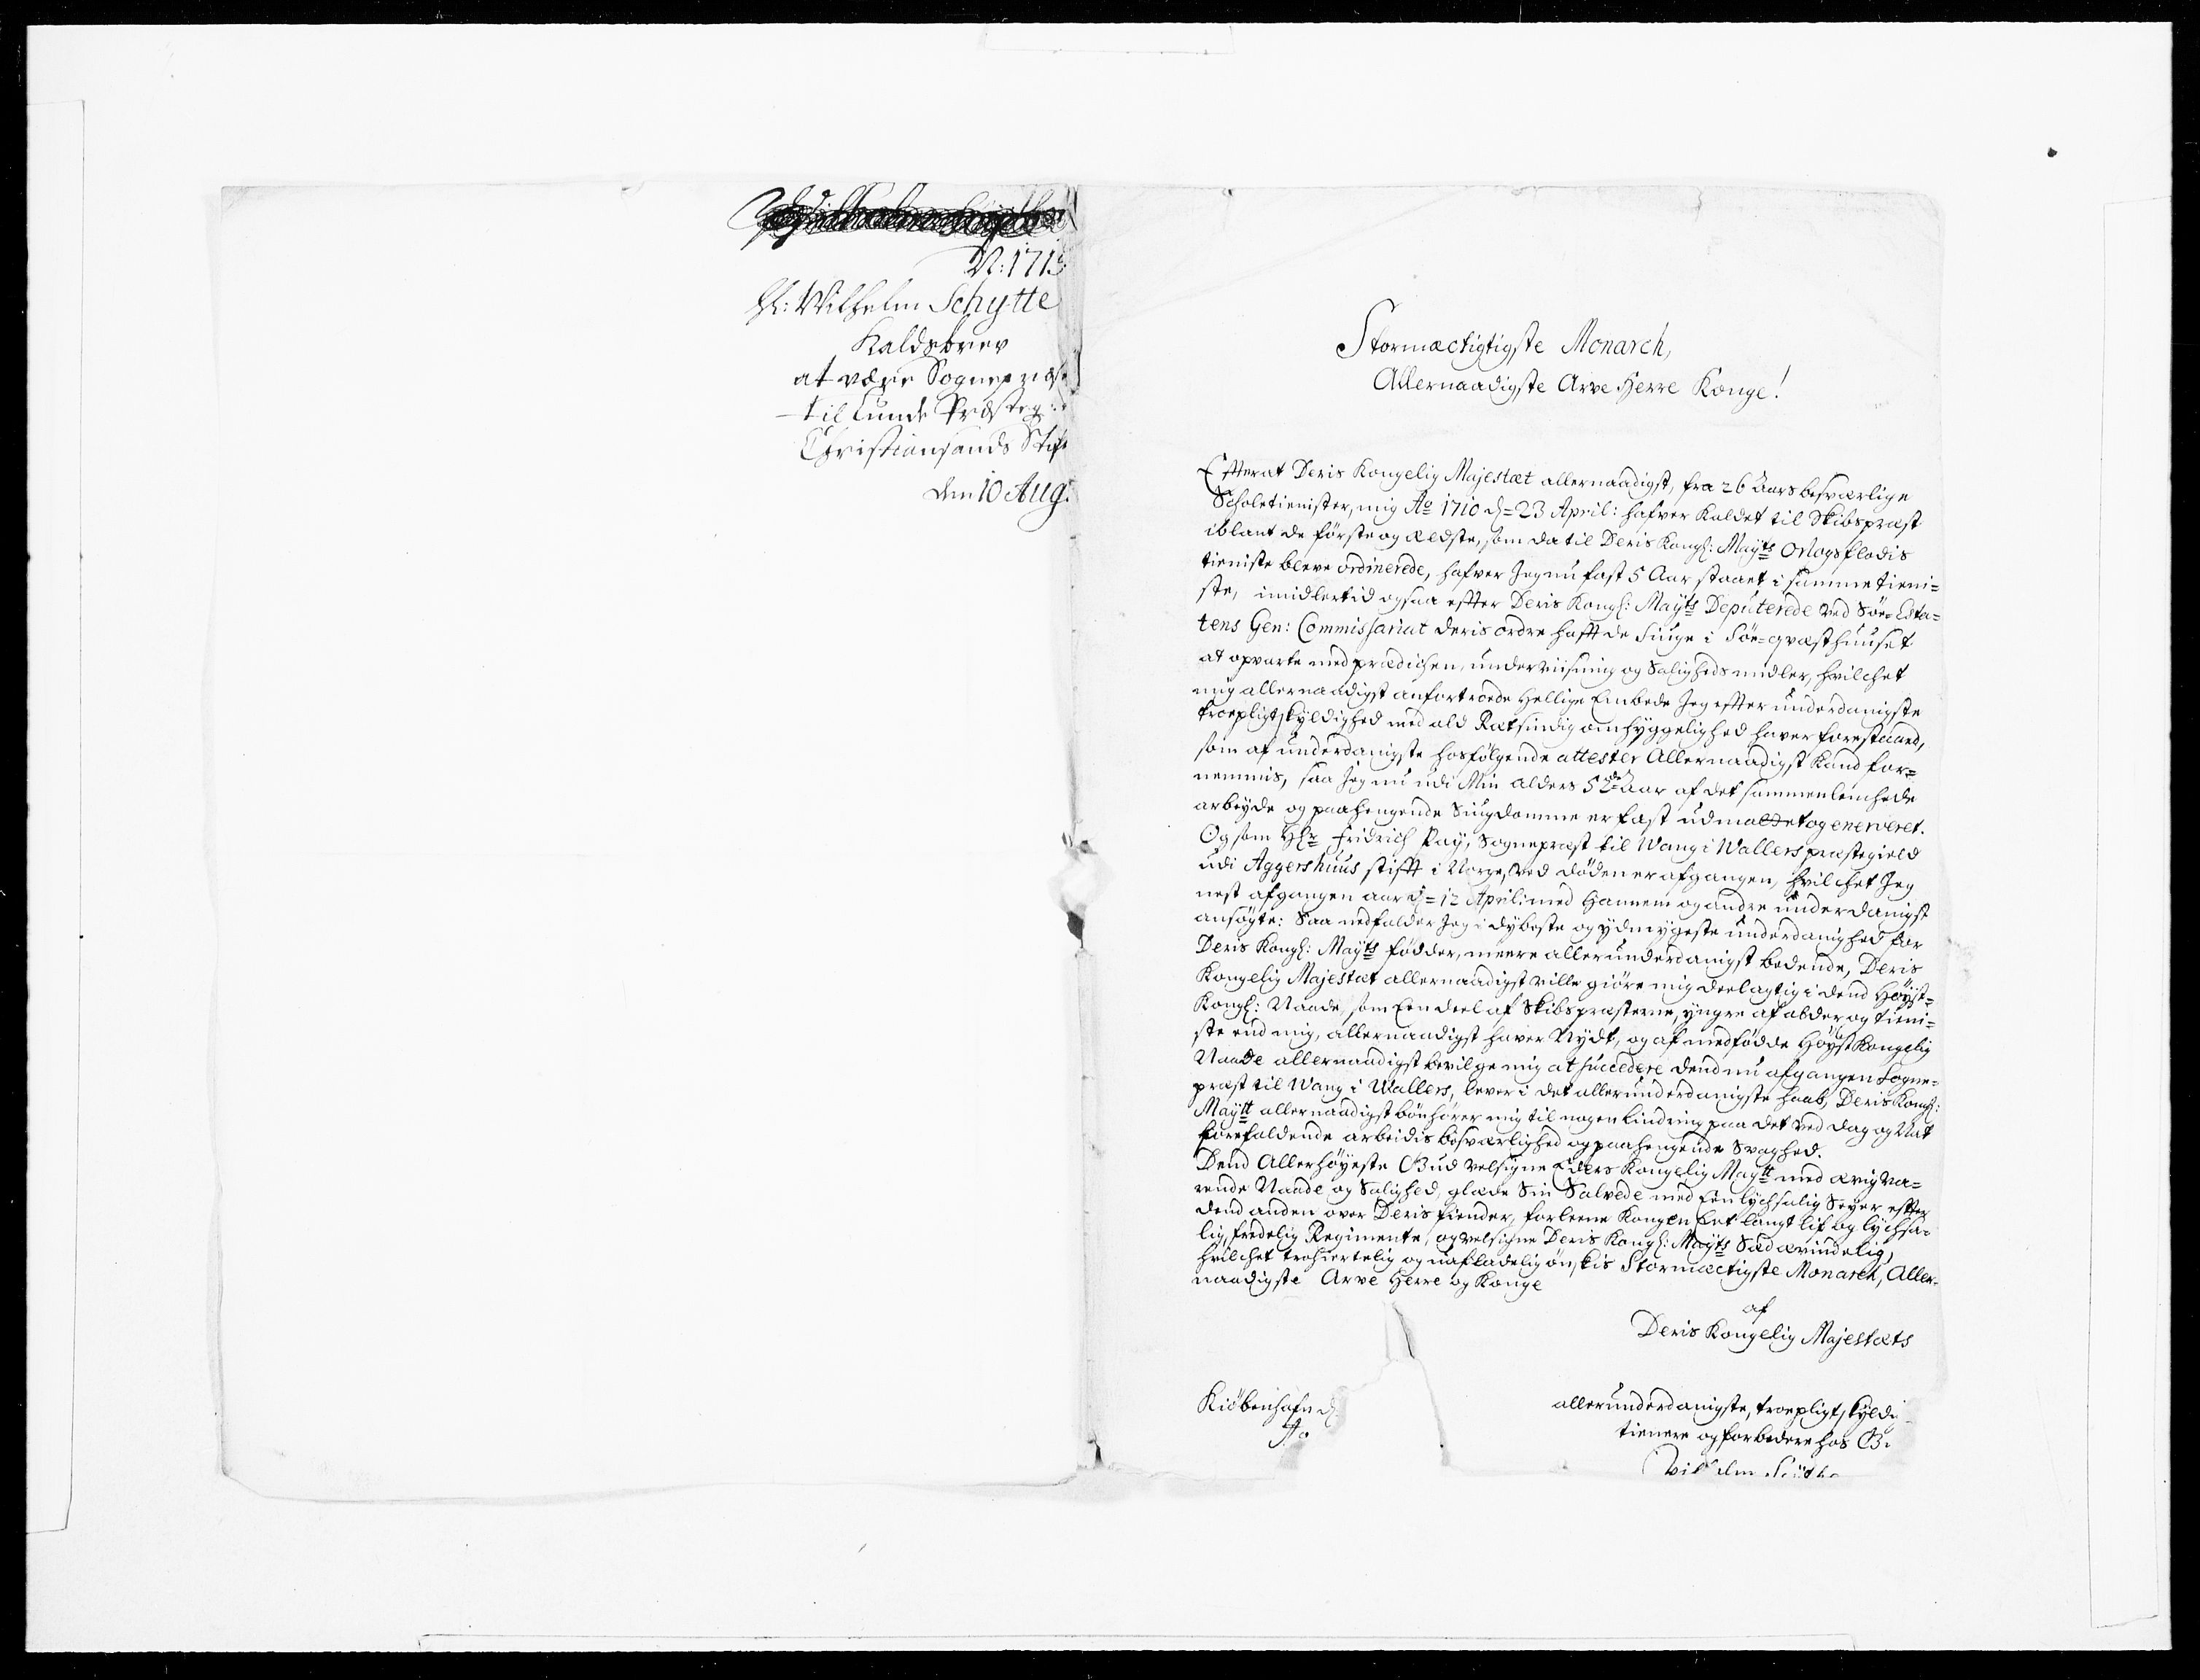 N: 1715
Hr: Wilhelm Schytte
Kaldsbrev
at være Sognepræst
til Lunde Præsteg:
Christiansands Stift
den 10 Aug:
Stormæctigtigste Monarch,
Allernaadigste Arve Herre Konge!
Efterat Deris Kongelig Majestæt allernaadigst, fra 26 Aars besværlige
Scholetienister, mig Ao 1710 d= 23 April: hafver Kaldet til Skibspræst
iblant de förste og ældste, som da til Deris Kongl: Mayts Orlogsflodis
tieniste bleve ordinerede, hafver Jeg nu fast 5 Aar staaet i samme tieni=
ste, imidlertid ogsaa efter Deris Kongl: Mayts Deputerede ved Söe=Esta=
tens Gen: Commissariat deris ordre hafft de Siuge i Söe=qvæsthuuset
at opvarte med prædichen, underviisning og Saligheds midler, hvilchet
mig allernaadigst anfortroede Hellige Embede Jeg efter underdanigste
troepligtskyldighed med ald Rætsindig omhyggelighed haver forestaaed,
som af underdanigste hosfölgende attester Allernaadigst Kand for=
nemmis, saa Jeg nu udi Min alders 52de Aar af det sammenlenchede
arbeyde og paahengende Siugdomme er fast udmattet og enerveret.
Og som Hr Fridrich Pay, Sognepræst til Wang i Wallers præstegield
udi Aggershuus stifft i Norge, ved döden er afgangen, hvilchet Jeg
nest afgangen aar d= 12 April: med Hannem og andre underdanigst
ansögte: Saa nedfalder Jeg i dybeste og ydmygeste underdanighed for
Deris Kongl: Mayts födder, meere allerunderdanigst bedende, Deris
Kongelig Majestæt allernaadigst ville giöre mig deelagtig i dend Höyst=
Kongl: Naade, som Een deel af Skibspræsterne, yngre af alder og tieni=
ste end mig, allernaadigst haver Nydt, og af medfödde Höyst Kongelig
Naade allernaadigst bevilge mig at succedere dend nu afgangen Sogne=
præst til Wang i Wallers, lever i det allerunderdanigste haab, Deris Kongl:
Maytt allernaadigst bönhörer mig til nogen Lindring paa det ved dag og Nat
forefaldende arbeidis besværlighed og paahengende Svaghed.
Dend Allerhöyeste Gud velsigne Eders Kongelig Maytt med ævigva=
rende Naade og Salighed, glæde Sin Salvede med Een lychsalig Seyer efter
dend anden over Deris fiender, forleene Kongen Eet langt lif og lychsa=
lig, fredelig Regimente, og velsigne Deris Kongl: Mayts Sæd ævindelig,
hvilchet trohiertelig og uafladelig önskis Stormæctigste Monarch, Aller=
naadigste Arve Herre og Konge
af
Deris Kongelig Majestæts
Kiöbenhafn d:
Ao
allerunderdanigste, troepligtskyldi
tienere og forbedere hos G
Wilhelm